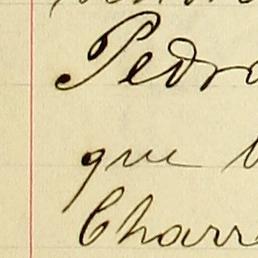 Pedro
que
Charr